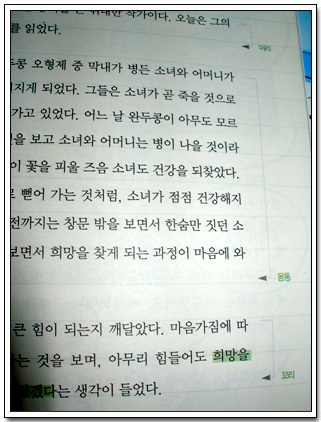 위대한 작가이다. 오늘은 그의
를 읽었다.
머리
두콩 오형제 중 막내가 병든 소녀와 어머니가
지게 되었다. 그들은 소녀가 곧 죽을 것으로
가고 있었다. 어느 날 완두콩이 아무도 모르
을 보고 소녀와 어머니는 병이 나을 것이라
이 꽃을 피울 즈음 소녀도 건강을 되찾았다.
뻗어 가는 것처럼, 소녀가 점점 건강해지
전까지는 창문 밖을 보면서 한숨만 짓던 소
보면서 희망을 찾게 되는 과정이 마음에 와
몸통
큰 힘이 되는지 깨달았다. 마음가짐에 따
는 것을 보며, 아무리 힘들어도 희망을
꼬리
겠다는 생각이 들었다.